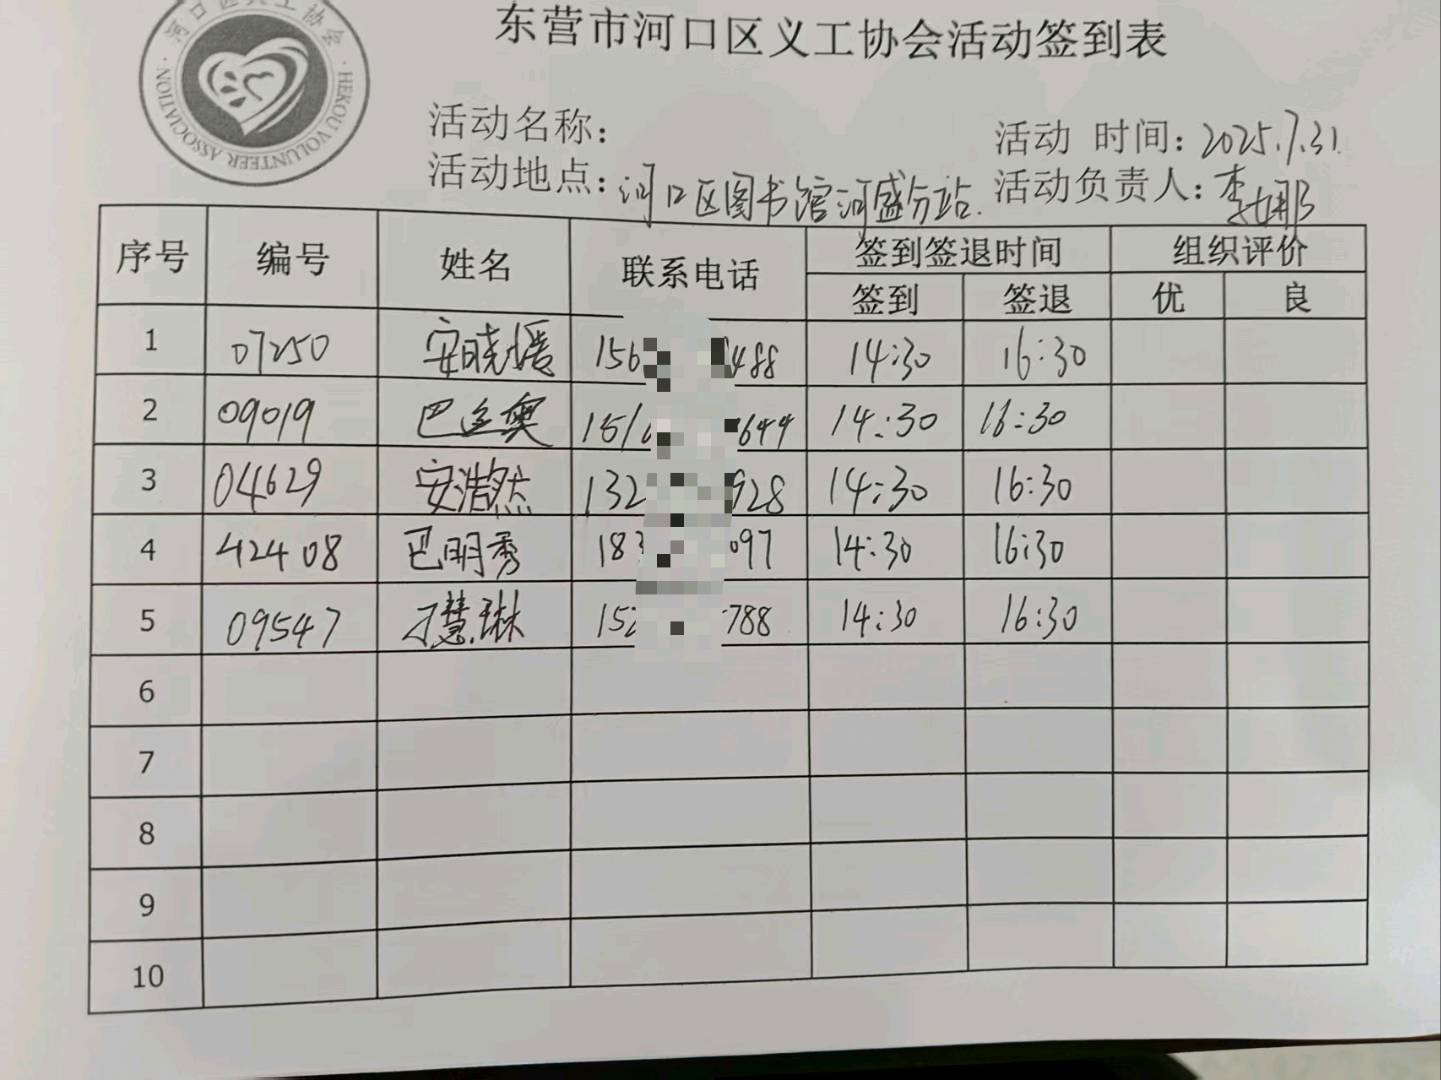 河口区义工协会
HEKOU VOLUNTEER ASSOCIATION
东营市河口区义工协会活动签到表
活动名称：
活动 时间：2025.7.31.
活动地点：河口区图书馆河盛分站.
活动负责人：李娜
序号 编号 姓名 联系电话 签到签退时间 组织评价
签到 签退 优 良
1 07250 安晓媛 156 488 14:30 16:30
2 09019 巴运奥 151 644 14:30 16:30
3 04629 安浩然 132 928 14:30 16:30
4 42408 巴明秀 183 097 14:30 16:30
5 09547 刁慧琳 152 788 14:30 16:30
6
7
8
9
10